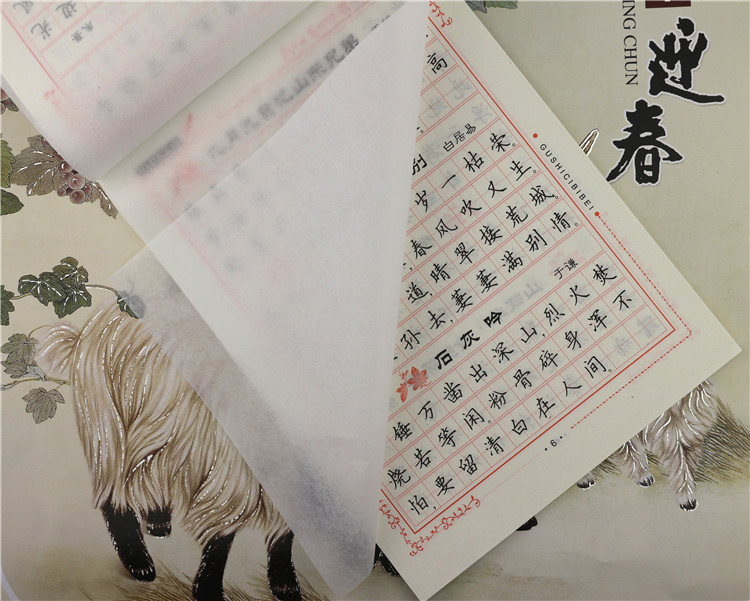 ING CHUN
迎春
高
别 白居易
岁一枯荣。
,春风吹又生。
道,晴翠接荒城。
孙去,萋萋满别情。
石灰吟 于谦
锤万凿出深山,烈火焚
烧若等闲。粉骨碎身浑不
怕,要留清白在人间。
GUSHICIBIBEI
·6·